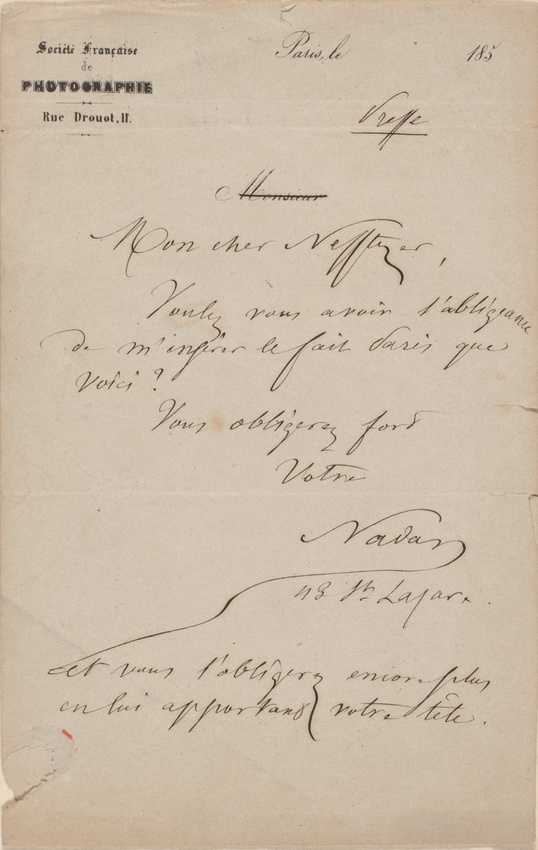 Société Française
de
PHOTOGRAPHIE
Rue Drouot, 11.
Paris, le 185
Presse
Monsieur
Mon cher Nefftzer,
Voulez vous avoir l'obligeance
de m'insérer le fait Paris que
voici ?
Vous obligerez fort
Votre
Nadar
113 St Lazare.
et vous l'obligerez encore plus
en lui apportant votre tête.